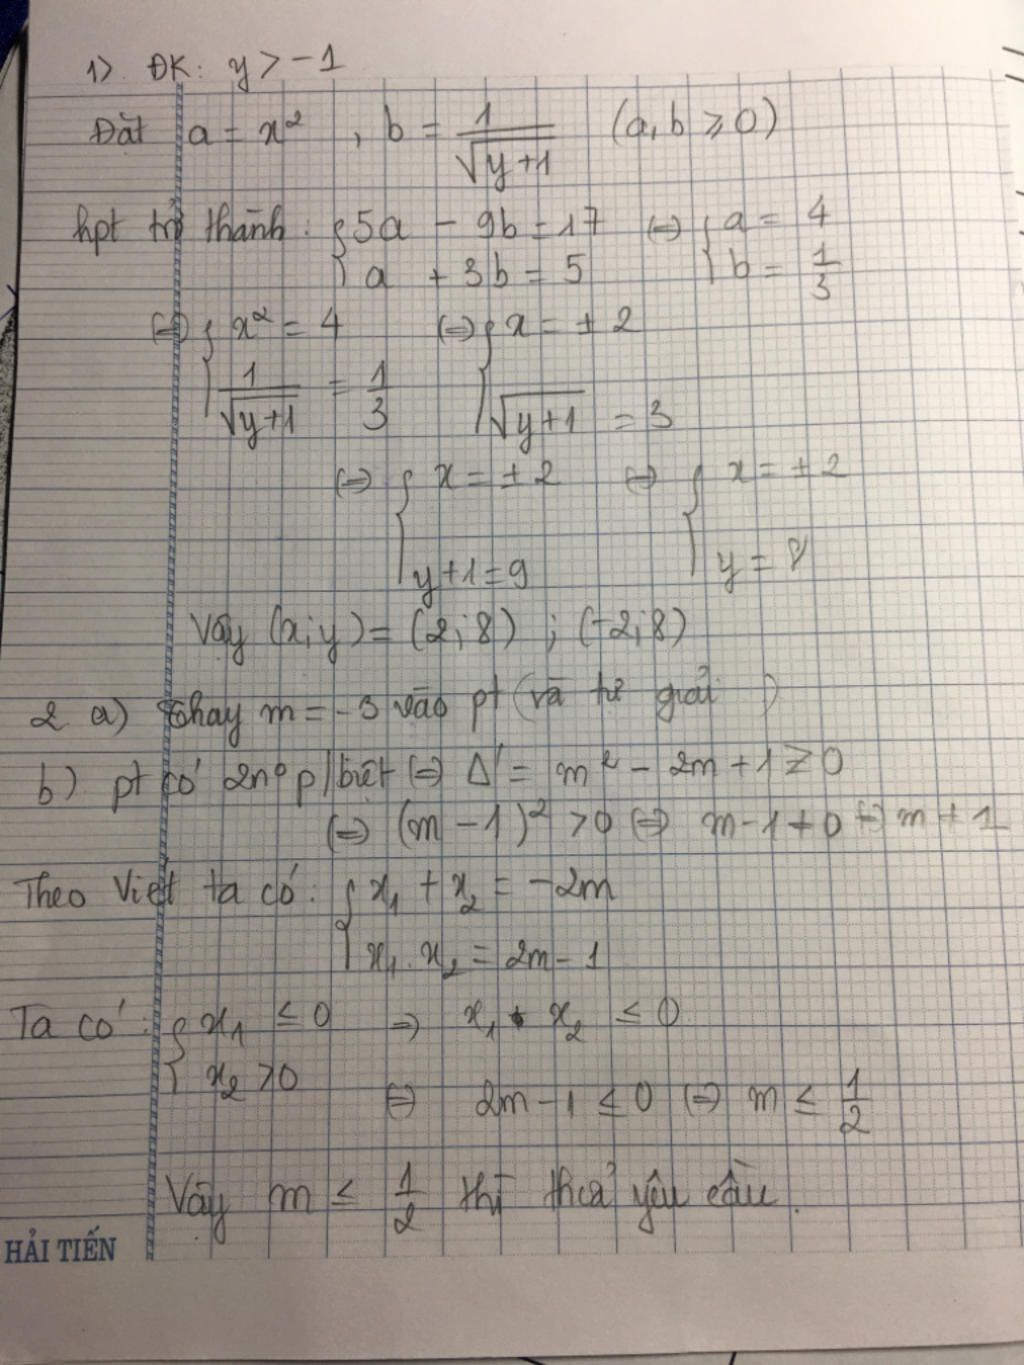 1) ĐK: y > -1
Đặt a = x² , b = 1/√(y+1) (a, b ≥ 0)
hpt trở thành: { 5a - 9b = 17 ⇔ { a = 4
a + 3b = 5 b = 1/3
⇔ { x² = 4 ⇔ { x = ±2
1/√(y+1) = 1/3 √(y+1) = 3
⇔ { x = ±2 ⇔ { x = ±2
y+1 = 9 y = 8
Vậy (x;y) = (2;8) ; (-2;8)
2 a) Thay m = -3 vào pt (và tự giải )
b) pt có 2n° p/biệt ⇔ Δ' = m² - 2m + 1 > 0
⇔ (m - 1)² > 0 ⇔ m - 1 ≠ 0 ⇔ m ≠ 1
Theo Viét ta có: { x₁ + x₂ = -2m
x₁. x₂ = 2m - 1
Ta có: { x₁ ≤ 0 ⇒ x₁ . x₂ ≤ 0
x₂ > 0
⇔ 2m - 1 ≤ 0 ⇔ m ≤ 1/2
Vậy m ≤ 1/2 thì thoả yêu cầu.
HẢI TIẾN